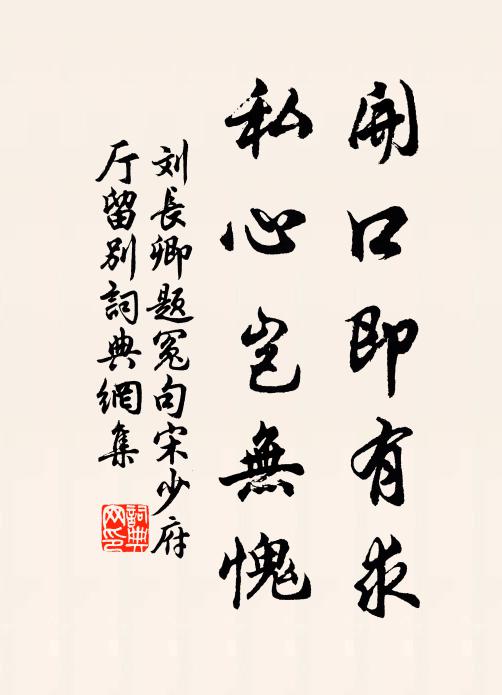 開口即有求
私心岂無愧
刘長卿題冤句宋少府
厅留别詞典網集
詞典
网印